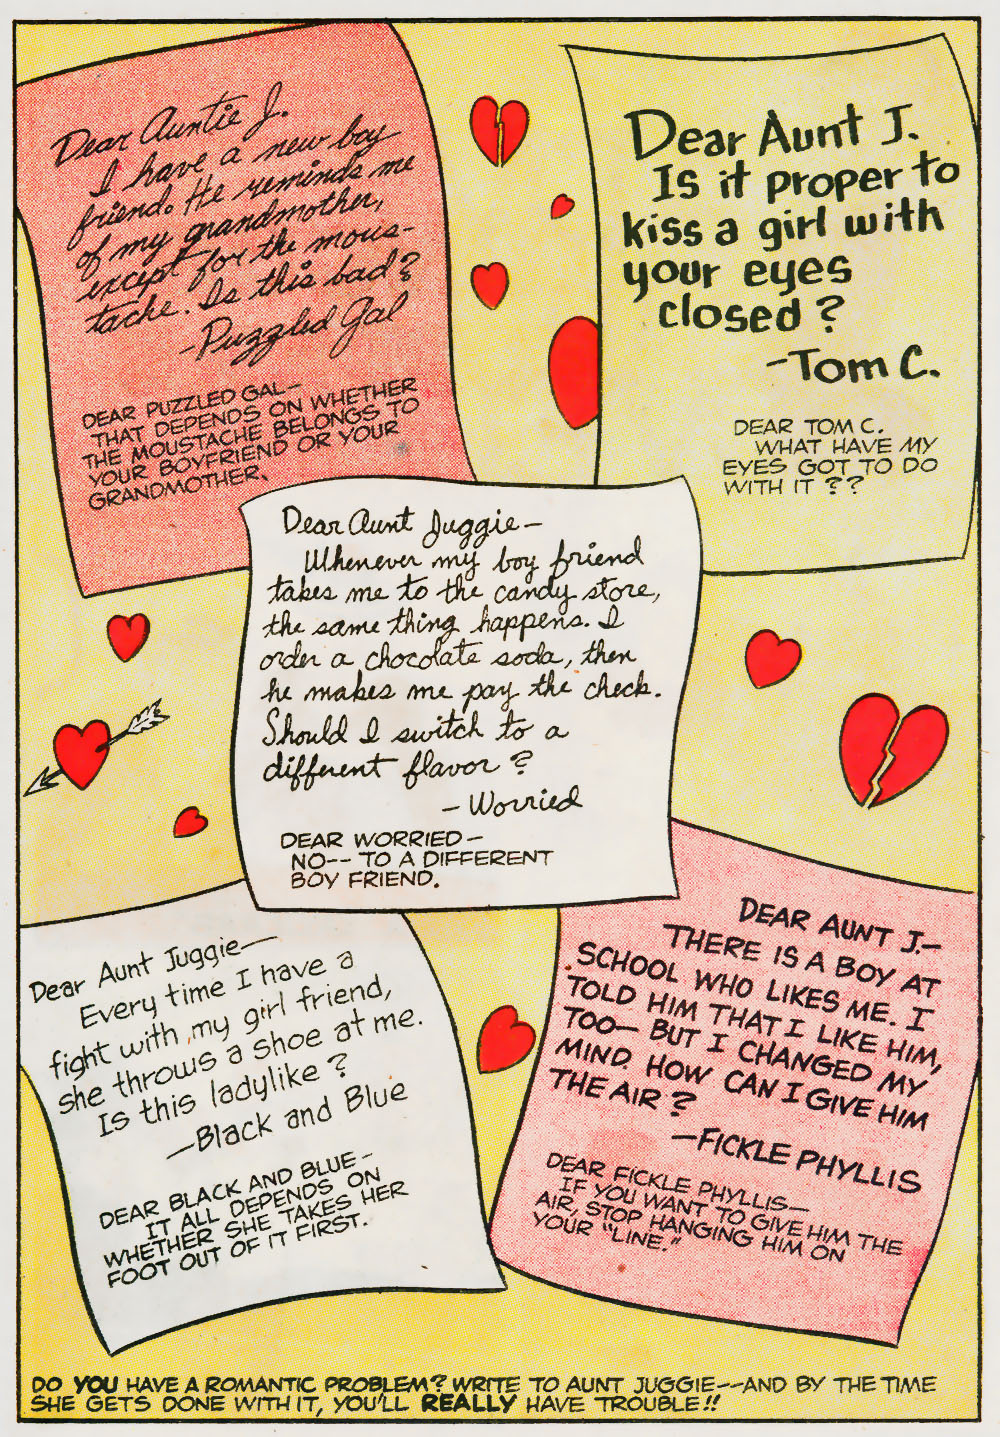 Dear Auntie J.
I have a new boy
friend. He reminds me
of my grandmother,
except for the mous-
tache. Is this bad?
-Puzzled Gal
DEAR PUZZLED GAL-
THAT DEPENDS ON WHETHER
THE MOUSTACHE BELONGS TO
YOUR BOYFRIEND OR YOUR
GRANDMOTHER.
Dear Aunt J.
Is it proper to
kiss a girl with
your eyes
closed?
-Tom C.
DEAR TOM C.
WHAT HAVE MY
EYES GOT TO DO
WITH IT ??
Dear Aunt Juggie-
Whenever my boy friend
takes me to the candy store,
the same thing happens. I
order a chocolate soda, then
he makes me pay the check.
Should I switch to a
different flavor?
-Worried
DEAR WORRIED-
NO-- TO A DIFFERENT
BOY FRIEND.
Dear Aunt Juggie-
Every time I have a
fight with my girl friend,
she throws a shoe at me.
Is this ladylike?
-Black and Blue
DEAR BLACK AND BLUE-
IT ALL DEPENDS ON
WHETHER SHE TAKES HER
FOOT OUT OF IT FIRST.
DEAR AUNT J.-
THERE IS A BOY AT
SCHOOL WHO LIKES ME. I
TOLD HIM THAT I LIKE HIM,
TOO- BUT I CHANGED MY
MIND. HOW CAN I GIVE HIM
THE AIR?
-FICKLE PHYLLIS
DEAR FICKLE PHYLLIS-
IF YOU WANT TO GIVE HIM THE
AIR, STOP HANGING HIM ON
YOUR "LINE."
DO YOU HAVE A ROMANTIC PROBLEM? WRITE TO AUNT JUGGIE--AND BY THE TIME
SHE GETS DONE WITH IT, YOU'LL REALLY HAVE TROUBLE!!